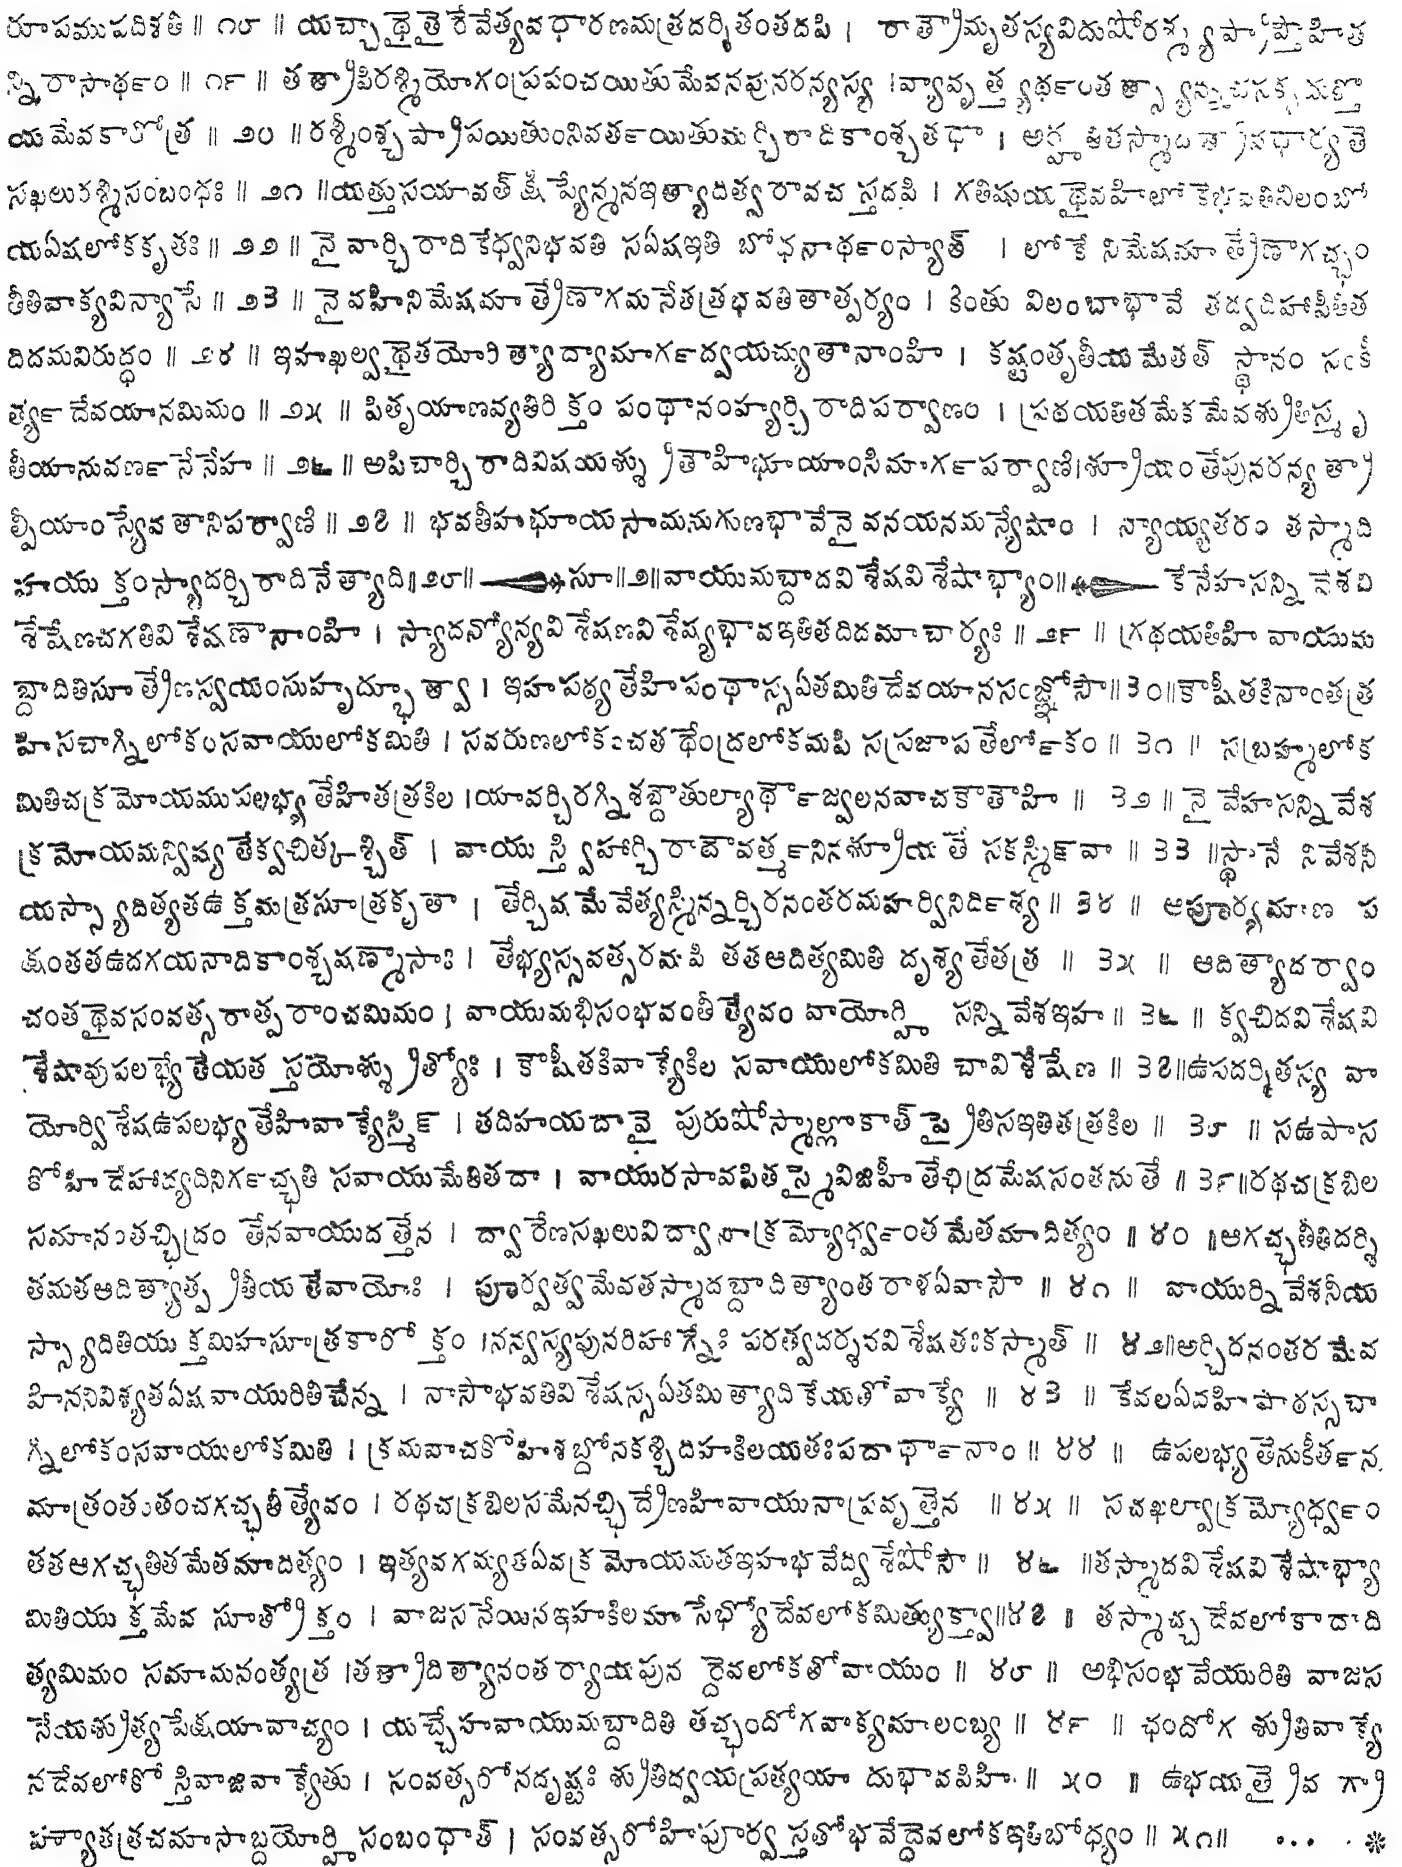 రూపముపదిశతి ॥ ౧౮ ॥ యచ్చాథైతై రేవేత్యవ ధారణమత్రదర్శితంతదపి । రాత్రౌమృతస్యవిదుషోరశ్మ్య ప్రాప్తౌహిత
న్నిరాసార్థం ॥ ౧౯ ॥ తత్రాపిరశ్మియోగంప్రపంచయితుమేవనపునరన్యస్య । వ్యావృత్త్యర్థంత
యమేవకాలోత్ర ॥ ౨౦ ॥ రశ్మీంశ్చ ప్రాపయితుంనివర్తయితుమర్చిరాదికాంశ్చతథా । అగ్న్హ
సఖలురశ్మిసంబంధః ॥ ౨౧ ॥ యత్తుసయావత్ క్షిప్యేన్మనఇత్యాదిత్వరావచ స్తదపి । గతిషుయథైవహిలోకేభవతివిలంబో
యఏషలోకకృతః ॥ ౨౨ ॥ నై వార్చిరాదికేధ్వనిభవతి సఏషఇతి బోధనార్థంస్యాత్ । లోకే నిమేషమాత్రేణాగచ్ఛం
తీతివాక్యవిన్యాసే ॥ ౨౩ ॥ నై వహినిమేషమాత్రేణాగమనేతత్రభవతితాత్పర్యం । కింతు విలంబాభావే తద్వదిహాపీతిత
దిదమవిరుద్ధం ॥ ౨౪ ॥ ఇహఖల్వథైతయోరిత్యాద్యామార్గద్వయచ్యుతానాంహి । కష్టంతృతీయమేతత్ స్థానం సంకీ
ర్త్య దేవయానమిమం ॥ ౨౫ ॥ పితృయాణవ్యతిరిక్తం పంథానంహ్యర్చిరాదిపర్వాణం । ప్రథయతితమేకమేవశ్రుతిస్మృ
తీయానువర్ణనేనేహ ॥ ౨౬ ॥ అపిచార్చిరాదివిషయశ్రుతౌహిభూయాంసిమార్గపర్వాణి।శ్రూయంతేపునరన్యత్రా
ల్పీయాంస్యేవ తానిపర్వాణి ॥ ౨౭ ॥ భవతీహభూయసామనుగుణభావేనై వనయనమన్యేషాం । న్యాయ్యతరం తస్మాది
హయుక్తంస్యాదర్చిరాదినేత్యాది॥౨౮॥ సూ॥౨॥వాయుమబ్దాదవిశేషవిశేషాభ్యాం॥ కేనేహసన్నివేశవి
శేషేణచగతివిశేషణానాంహి । స్యాదన్యోన్యవిశేషణవిశేష్యభావఇతితదిదమాచార్యః ॥ ౨౯ ॥ గ్రథయతిహి వాయుమ
బ్దాదితిసూత్రేణస్వయంసుహృద్భూత్వా । ఇహపఠ్యతేహిపంథాస్సఏతమితిదేవయానసంజ్ఞోసౌ॥౩౦॥కౌషీతకినాంతత్ర
హిసచాగ్నిలోకంసవాయులోకమితి । సవరుణలోకంచతథేంద్రలోకమపి సప్రజాపతేర్లోకం ॥ ౩౧ ॥ సబ్రహ్మలోక
మితిచక్రమోయముపలభ్యతేహితత్రకిల ।యావర్చిరగ్నిశబ్దౌతుల్యార్థౌజ్వలనవాచకౌతౌహి ॥ ౩౨ ॥ నై వేహసన్నివేశ
క్రమోయమన్విష్యతేక్వచిత్కశ్చిత్ । వాయుస్త్విహార్చిరాదౌవర్త్మనినశ్రూయతే సకస్మిన్వా ॥ ౩౩ ॥స్థానే నివేశనీ
యస్స్యాదిత్యతఉక్తమత్రసూత్రకృతా । తేర్చిషమేవేత్యస్మిన్నర్చిరనంతరమహర్వినిర్దిశ్య॥ ౩౪ ॥ ఆపూర్యమాణ ప
క్షంతతఉదగయనాదికాంశ్చషణ్మాసాః । తేభ్యస్సవత్సరమపి తతఆదిత్యమితి దృశ్యతేతత్ర ॥ ౩౫ ॥ ఆదిత్యాదర్వాం
చంతథైవసంవత్సరాత్పరాంచమిమం । వాయుమభిసంభవంతీత్యేవం వాయోర్హి సన్నివేశఇహ ॥ ౩౬ ॥ క్వచిదవిశేషవి
శేషావుపలభ్యేతేయత స్తయోశ్శ్రుత్యోః । కౌషీతకివాక్యేకిల సవాయులోకమితి చావిశేషేణ ॥ ౩౭॥ఉపదర్శితస్య వా
యోర్విశేషఉపలభ్యతేహివాక్యేస్మిన్ । తదిహయదావై పురుషోస్మాల్లోకాత్ ప్రైతిసఇతితత్రకిల ॥ ౩౮ ॥ సఉపాస
కోహి దేహాద్యదినిర్గచ్ఛతి సవాయుమేతితదా । వాయురసావపితస్మైవిజిహీతేఛిద్రమేషసంతనుతే ॥ ౩౯॥రథచక్రబిల
సమానంతచ్ఛిద్రం తేనవాయుదత్తేన । ద్వారేణసఖలువిద్వానాక్రమ్యోర్ధ్వంతమేతమాదిత్యం ॥ ౪౦ ॥ఆగచ్ఛతీతిదర్శి
తమతఆదిత్యాత్ప్రతీయతేవాయోః । పూర్వత్వమేవతస్మాదబ్దాదిత్యాంతరాళఏవాసౌ ॥ ౪౧ ॥ వాయుర్నివేశనీయ
స్స్యాదితియుక్తమిహసూత్రకారోక్తం ।నన్వస్యపునరిహాగ్నేః పరత్వదర్శనవిశేషతఃకస్మాత్ ॥ ౪౨॥అర్చిరనంతరమేవ
హినవివిశ్యతఏషవాయురితిచేన్న । నాసౌభవతివిశేషస్సఏతమిత్యాదికేయతోవాక్యే ॥ ౪౩ ॥ కేవలఏవహిపాఠస్సచా
గ్నిలోకంసవాయులోకమితి । క్రమవాచకోహిశబ్దోనకశ్చిదిహకిలయతఃపదార్థానాం ॥ ౪౪ ॥ ఉపలభ్యతేనుకీర్తన
మాత్రంత్వతంచగచ్ఛతీత్యేవం । రథచక్రబిలసమేనచ్ఛిద్రేణహివాయునాప్రవృత్తేన ॥ ౪౫ ॥ సచఖల్వాక్రమ్యోర్ధ్వం
తతఆగచ్ఛతితమేతమాదిత్యం । ఇత్యవగమ్యతఏవక్రమోయమతఇహభవేద్విశేషోసౌ ॥ ౪౬ ॥తస్మాదవిశేషవిశేషాభ్యా
మితియుక్తమేవ సూత్రోక్తం । వాజసనేయినఇహకిలమాసేభ్యోదేవలోకమిత్యుక్త్వా॥౪౭ ॥ తస్మాచ్చదేవలోకాదాది
త్యమిమం సమామనంత్యత్ర ।తత్రాదిత్యానంతర్యాయపున ర్దేవలోకతోవాయుం ॥ ౪౮ ॥ అభిసంభవేయురితి వాజస
నేయశ్రుత్యపేక్షయావాచ్యం । యచ్చేహవాయుమబ్దాదితి తచ్ఛందోగవాక్యమాలంబ్య ॥ ౪౯ ॥ ఛందోగ శ్రుతివాక్యే
నదేవలోకోస్తివాజివాక్యేతు । సంవత్సరోనదృష్టః శ్రుతిద్వయప్రత్యయాదుభావపిహి ॥ ౫౦ ॥ ఉభయత్రైవగ్రా
హ్యాతత్రచమాసాబ్దయోర్హిసంబంధాత్ । సంవత్సరోహిపూర్వస్తతోభవేద్దేవలోకఇతిబోధ్యం ॥ ౫౧॥ ... . ❋